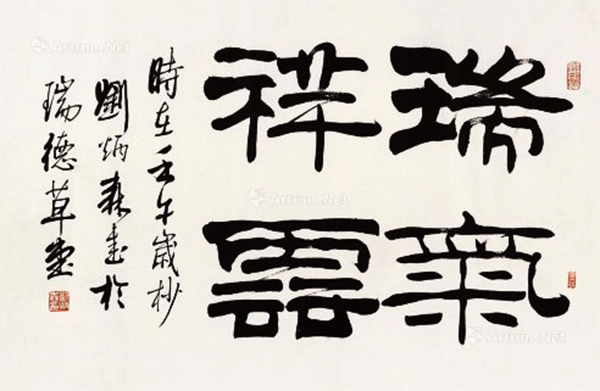 瑞氣
祥雲
時在壬午歲杪
劉炳森書於
瑞德草堂
Artron.Net
Artron.Net
Artron.Net
Artron.Net